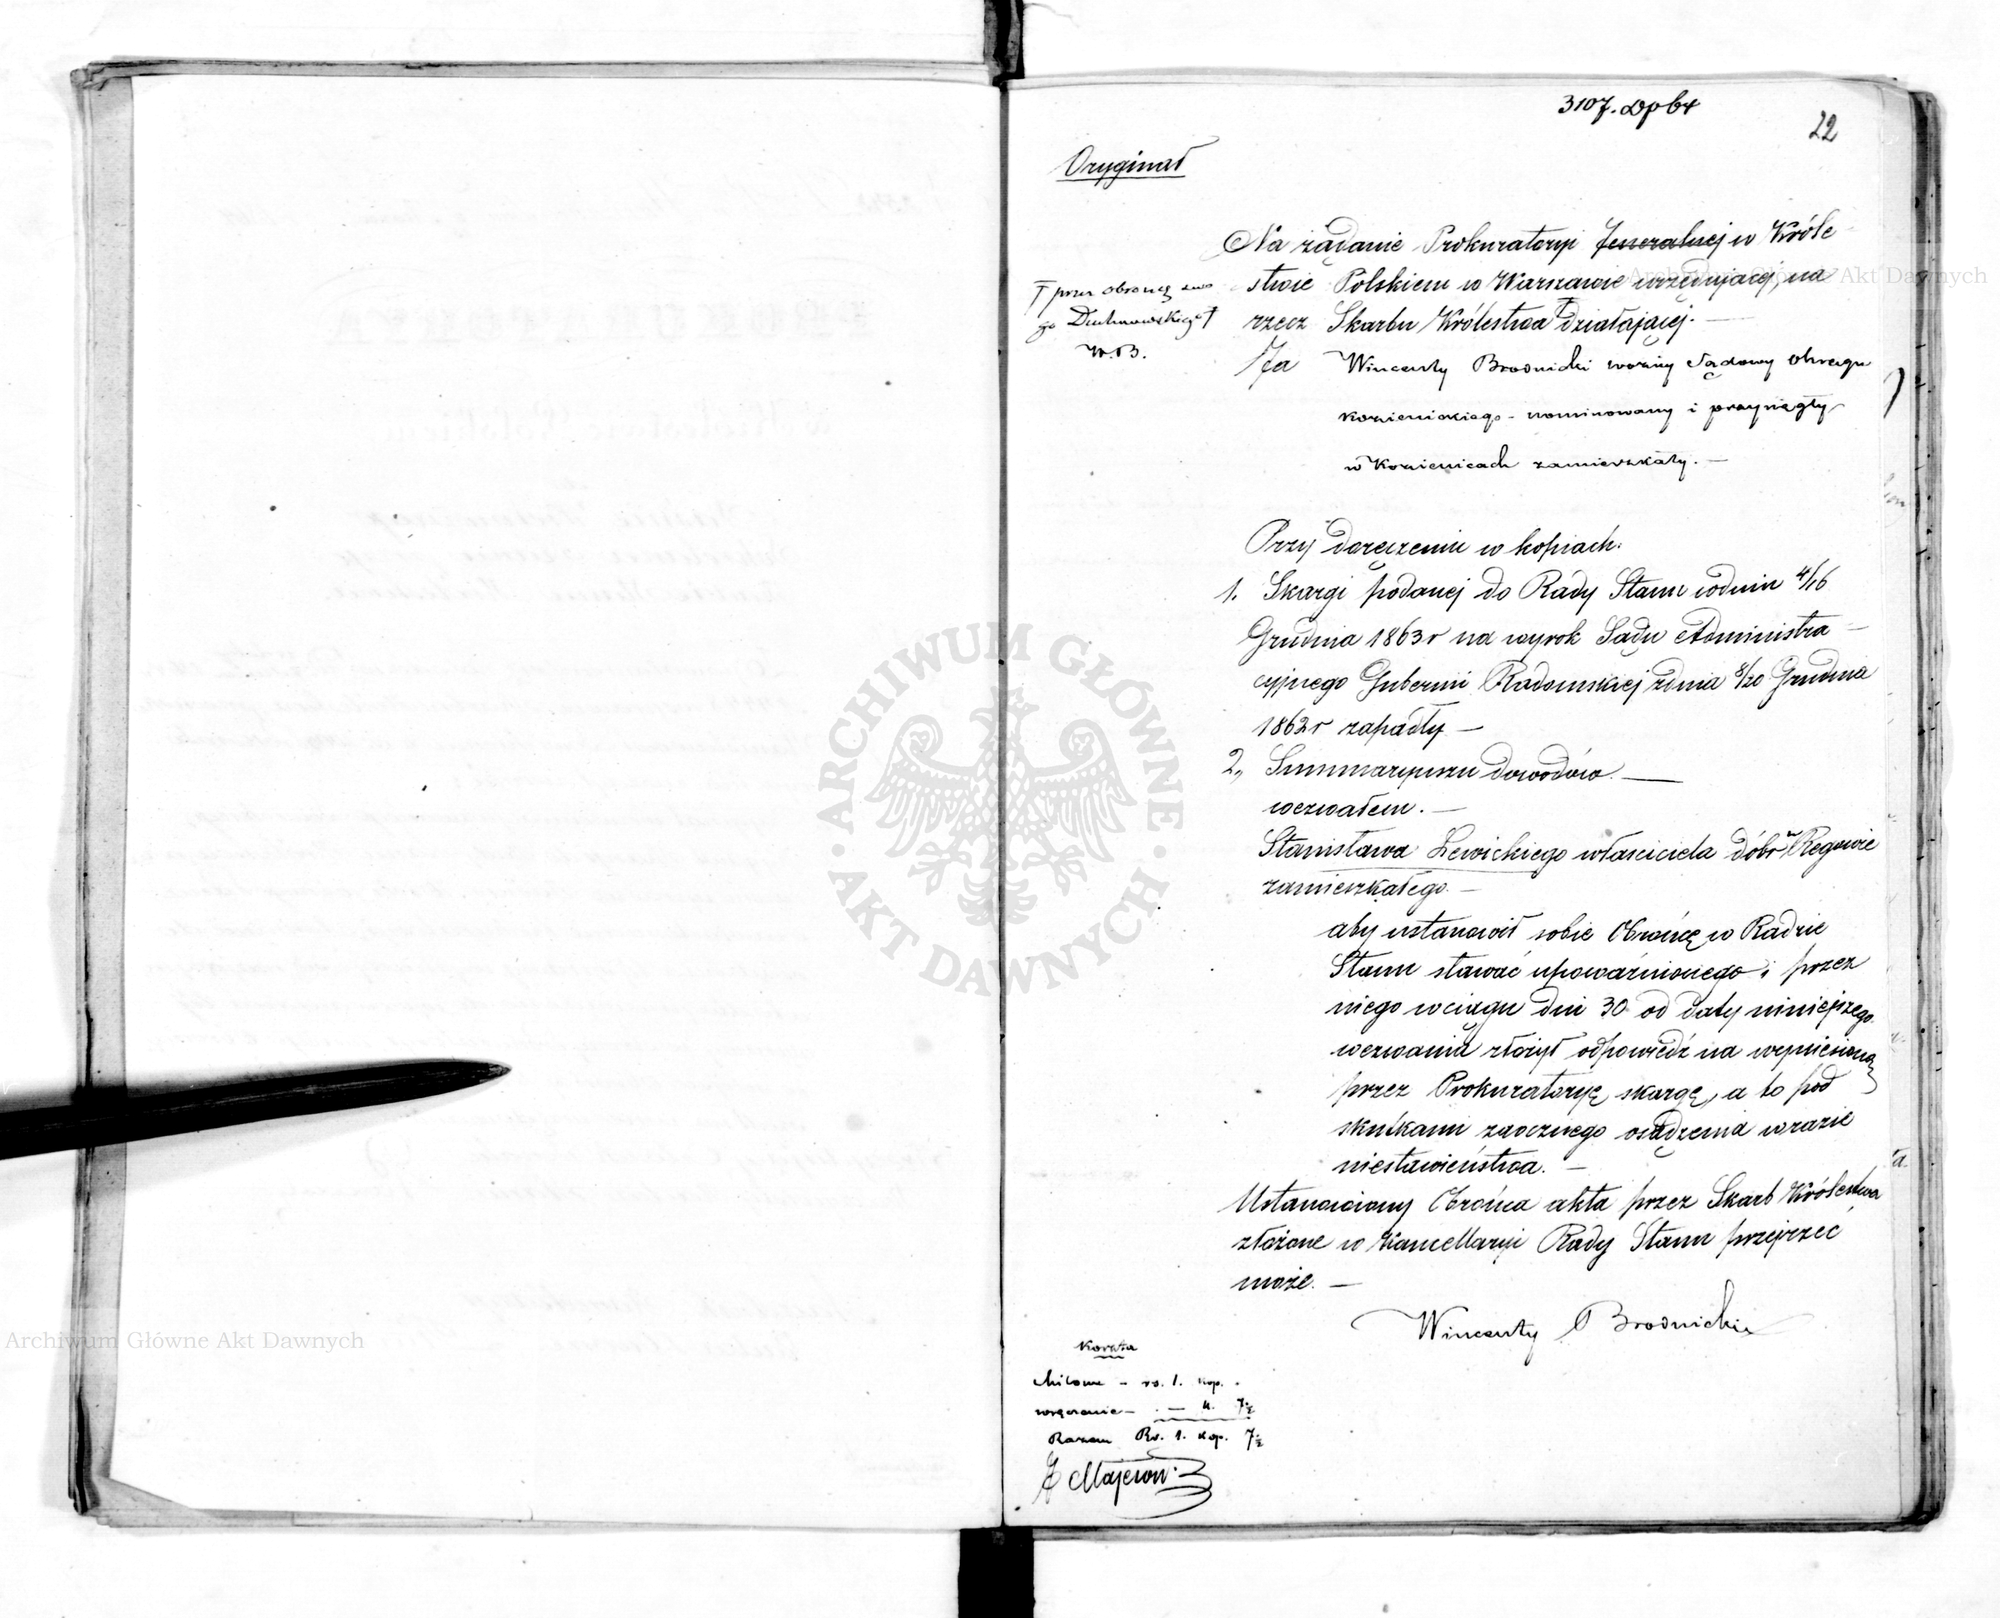 3107.
22
Oryginał
Na żądanie Prokuratoryi Jeneralnej w Króle
stwie Polskiem w Warszawie urzędującej, na
rzecz Skarbu Królestwa działającej. —
przez obrońcę swo
go Duchnowskiego
W.B.
Ja Wincenty Brodnicki woźny Sądowy Okręgu
Kozienickiego – nominowany i przysięgły
w Kozienicach zamieszkały. —
Przy doręczeniu w kopiach:
1. Skargi podanej do Rady Stanu wdniu 4/16
Grudnia 1863 r na wyrok Sądu Administra
cyjnego Gubernii Radomskiej zdnia 8/20 Grudnia
1862 r zapadły —
2, Summaryuszu dowodów. —
wezwałem. —
Stanisława Lewickiego właściciela dóbr w Regowie
zamieszkałego. —
aby ustanowił sobie Obrońcę w Radzie
Stanu stawać upoważnionego i przez
niego wciągu dni 30 od daty niniejszego
wezwania złożył odpowiedź na wyniesioną
przez Prokuratoryę skargę, a to pod
skutkami zaocznego osądzenia wrazie
niestawieństwa. —
Ustanowiony Obrońca akta przez Skarb Królestwa
złożone w Kancellaryi Rady Stanu przejrzeć
może. —
Wincenty Brodnicki
Koszta
Milowe – rs. 1. kop. –
wręczenie – . — k. 7½
Razem Rs. 1. kop. 7½
Majewski
ARCHIWUM GŁÓWNE
AKT DAWNYCH
Archiwum Główne Akt Dawnych
Archiwum Główne Akt Dawnych